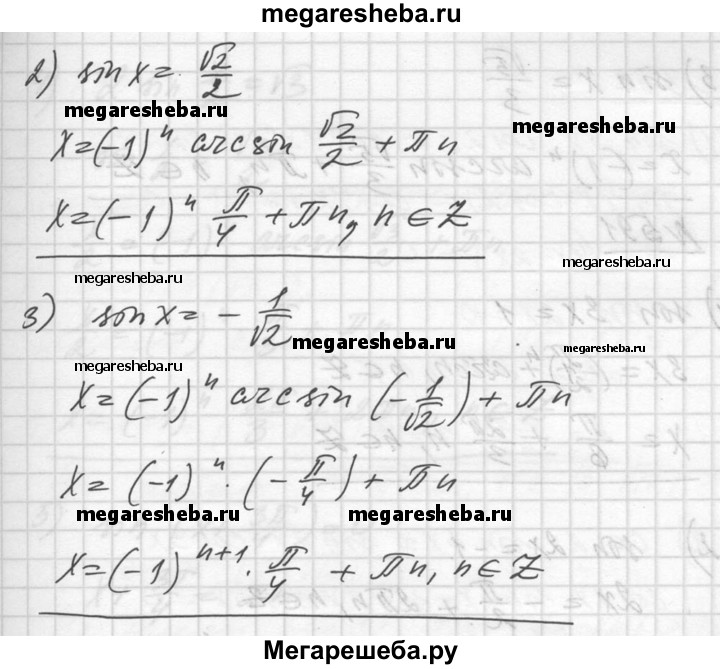 megaresheba.ru
2) sin x = √2/2
megaresheba.ru
megaresheba.ru
x = (-1)^n arcsin √2/2 + πn
x = (-1)^n π/4 + πn, n ∈ Z
megaresheba.ru
megaresheba.ru
3) sin x = - 1/√2
megaresheba.ru
megaresheba.ru
megaresheba.ru
x = (-1)^n arcsin (-1/√2) + πn
x = (-1)^n · (-π/4) + πn
megaresheba.ru
megaresheba.ru
x = (-1)^(n+1) · π/4 + πn, n ∈ Z
megaresheba.ru
megaresheba.ru
Мегарешеба.ру